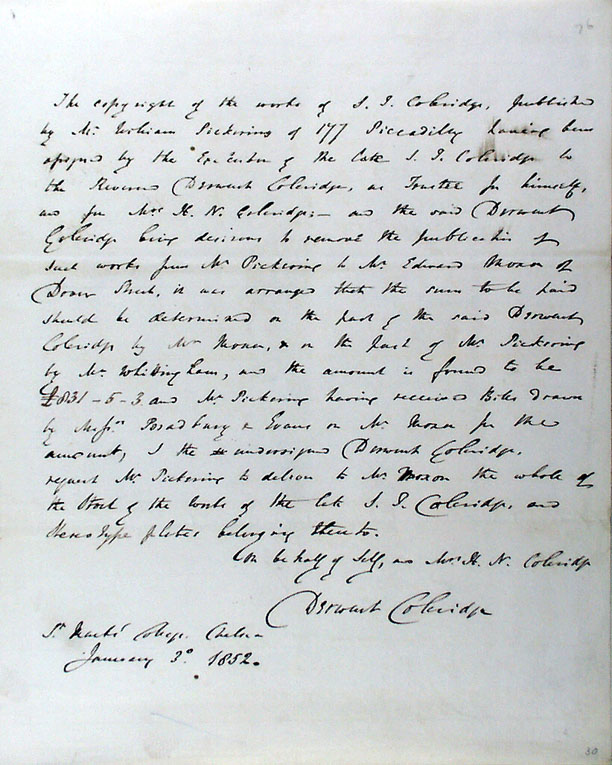 76
The copyright of the works of S. T. Coleridge, published
by Mr. William Pickering of 177 Piccadilly having been
assigned by the Executor of the late S. T. Coleridge to
the Reverend Derwent Coleridge, as Trustee for himself,
and for Mrs H. N. Coleridge; — and the said Derwent
Coleridge being desirous to remove the publication of
such works from Mr Pickering to Mr. Edward Moxon of
Dover Street, it was arranged that the sum to be paid
should be determined on the part of the said Derwent
Coleridge by Mr Moxon, & on the part of Mr. Pickering
by Mr. Whittingham, and the amount is found to be
£831-5-3 and Mr. Pickering having received Bills drawn
by Messrs Bradbury & Evans on Mr. Moxon for the
amount, I the undersigned Derwent Coleridge,
request Mr Pickering to deliver to Mr. Moxon the whole of
the Stock of the works of the late S. T. Coleridge, and
Stereotype plates belonging thereto.
On behalf of Self, and Mrs. H. N. Coleridge
Derwent Coleridge
St Marks' College. Chelsea
January 3o. 1852.
30